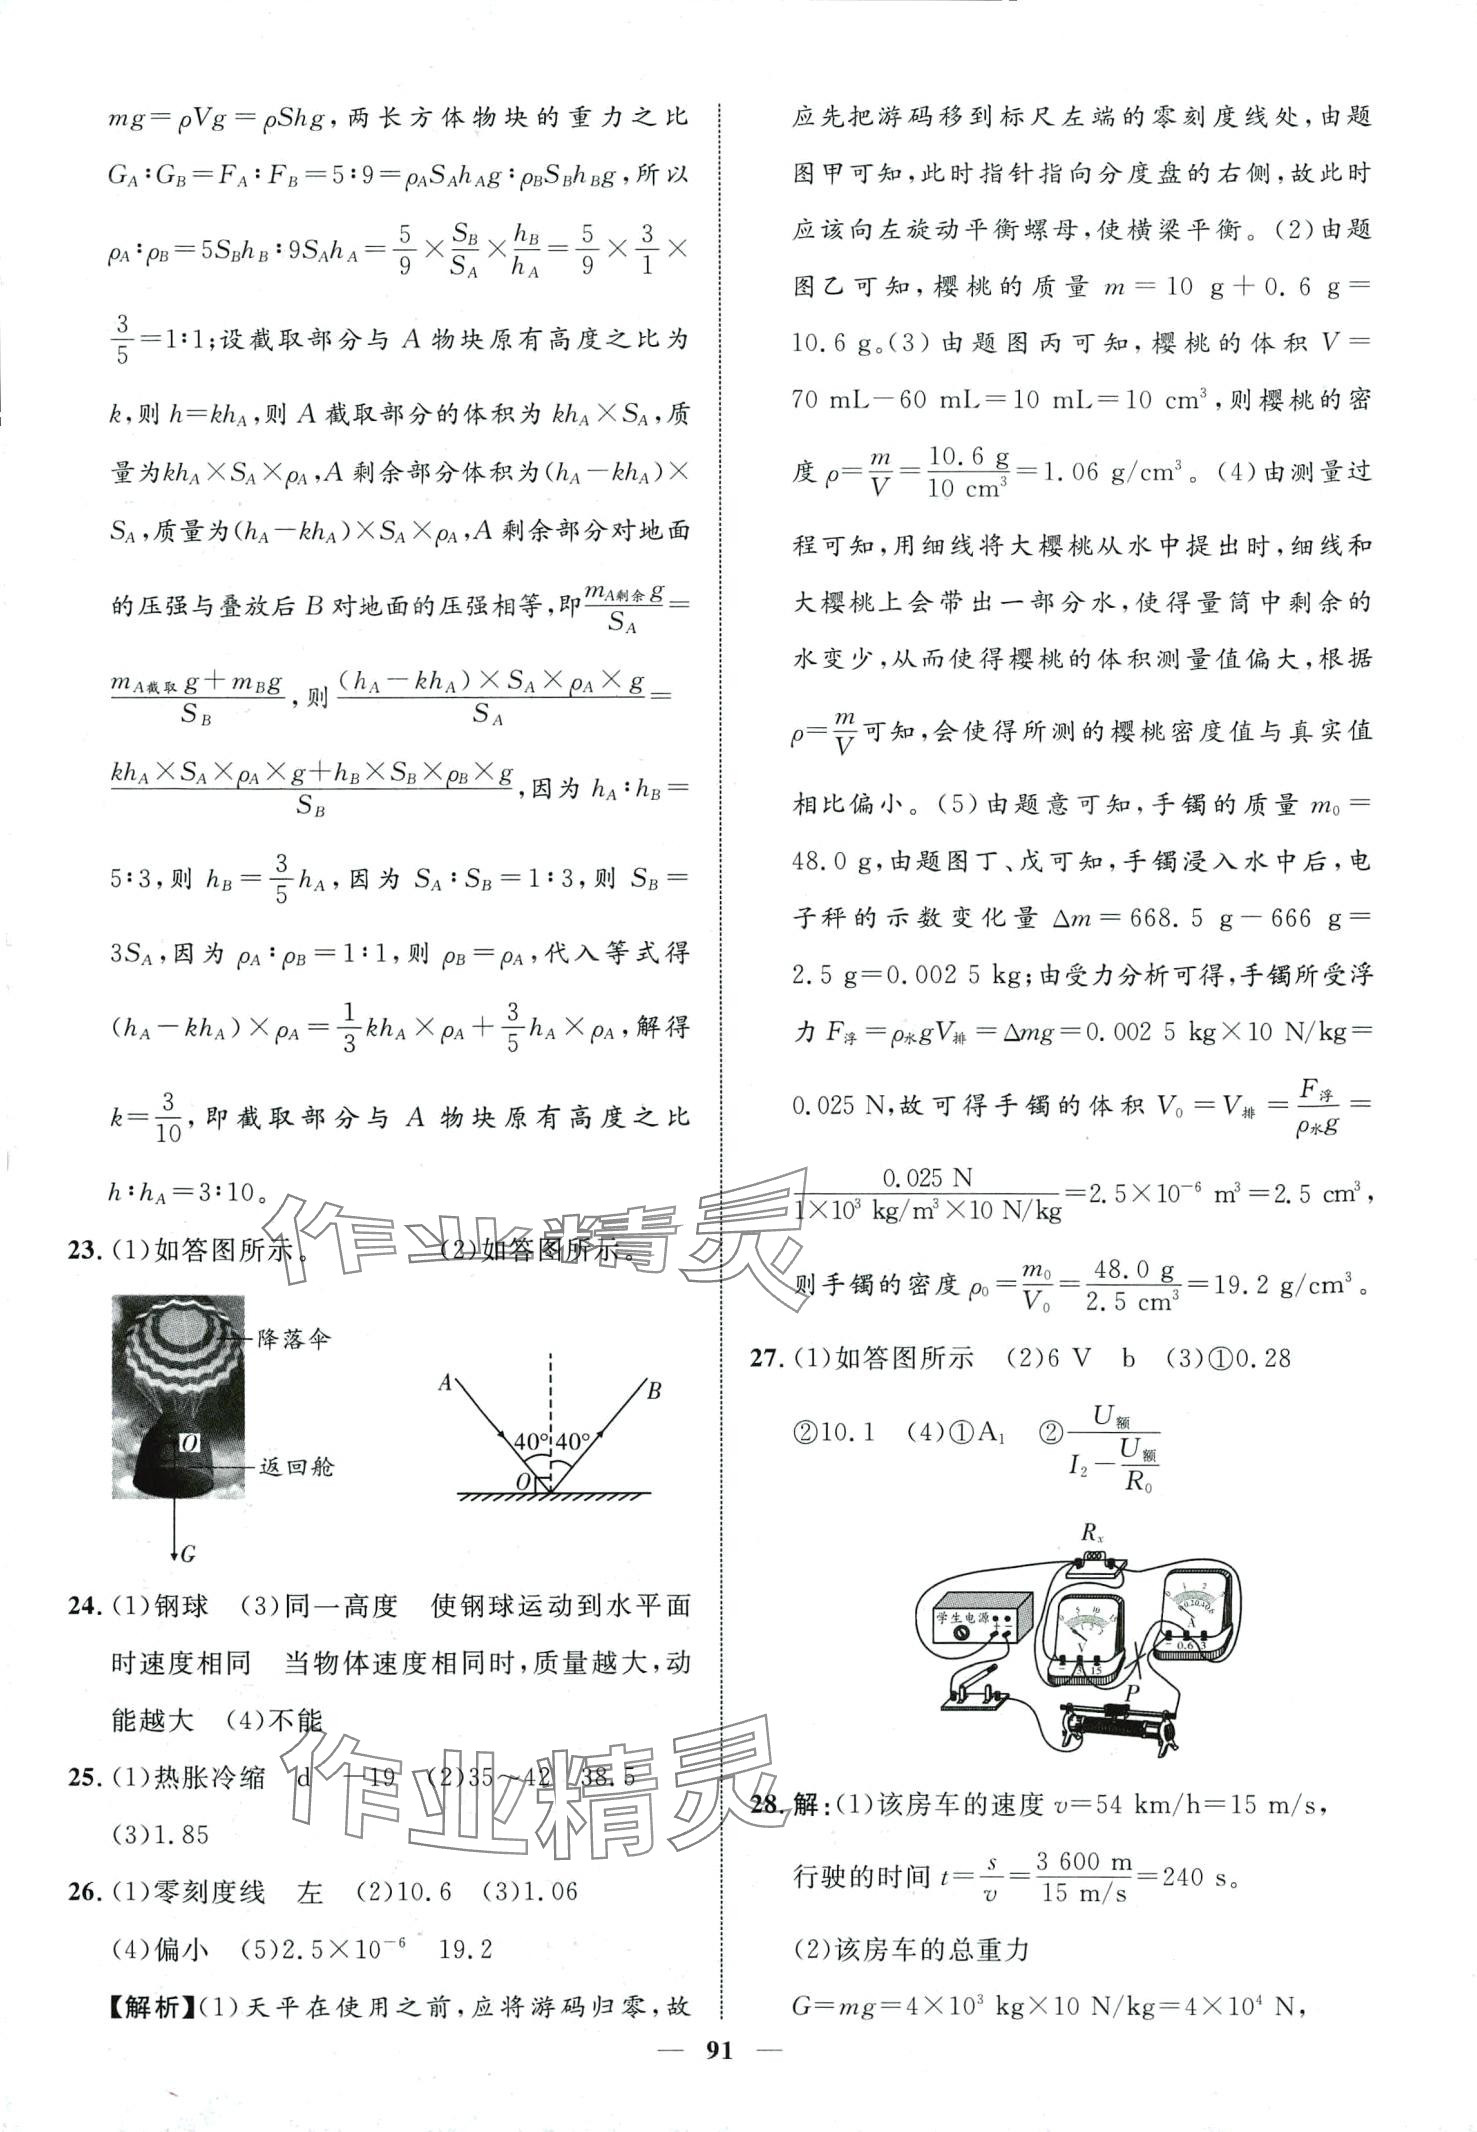 mg=ρVg=ρShg,两长方体物块的重力之比
G_A∶G_B=F_A∶F_B=5∶9=ρ_A S_A h_A g∶ρ_B S_B h_B g,所以
ρ_A∶ρ_B=5S_B h_B∶9S_A h_A=5/9×S_B/S_A×h_B/h_A=5/9×3/1×
3/5=1∶1;设截取部分与 A 物块原有高度之比为
k,则 h=kh_A,则 A 截取部分的体积为 kh_A×S_A,质
量为kh_A×S_A×ρ_A,A 剩余部分体积为(h_A-kh_A)×
S_A,质量为(h_A-kh_A)×S_A×ρ_A,A 剩余部分对地面
的压强与叠放后 B 对地面的压强相等,即m_A剩余g/S_A=
(m_A截取g+m_Bg)/S_B,则(h_A-kh_A)×S_A×ρ_A×g/S_A=
(kh_A×S_A×ρ_A×g+h_B×S_B×ρ_B×g)/S_B,因为 h_A∶h_B=
5∶3,则 h_B=3/5h_A,因为 S_A∶S_B=1∶3,则 S_B=
3S_A,因为 ρ_A∶ρ_B=1∶1,则 ρ_B=ρ_A,代入等式得
(h_A-kh_A)×ρ_A=1/3kh_A×ρ_A+3/5h_A×ρ_A,解得
k=3/10,即截取部分与 A 物块原有高度之比
h∶h_A=3∶10。
23.(1)如答图所示。 (2)如答图所示。
降落伞
O
返回舱
G
A
B
40° 40°
O
24.(1)钢球 (3)同一高度 使钢球运动到水平面
时速度相同 当物体速度相同时,质量越大,动
能越大 (4)不能
25.(1)热胀冷缩 d -19 (2)35~42 38.5
(3)1.85
26.(1)零刻度线 左 (2)10.6 (3)1.06
(4)偏小 (5)2.5×10⁻⁶ 19.2
【解析】(1)天平在使用之前,应将游码归零,故
应先把游码移到标尺左端的零刻度线处,由题
图甲可知,此时指针指向分度盘的右侧,故此时
应该向左旋动平衡螺母,使横梁平衡。(2)由题
图乙可知,樱桃的质量 m=10 g+0.6 g=
10.6 g。(3)由题图丙可知,樱桃的体积 V=
70 mL-60 mL=10 mL=10 cm³,则樱桃的密
度 ρ=m/V=10.6 g/10 cm³=1.06 g/cm³。(4)由测量过
程可知,用细线将大樱桃从水中提出时,细线和
大樱桃上会带出一部分水,使得量筒中剩余的
水变少,从而使得樱桃的体积测量值偏大,根据
ρ=m/V可知,会使得所测的樱桃密度值与真实值
相比偏小。(5)由题意可知,手镯的质量 m₀=
48.0 g,由题图丁、戊可知,手镯浸入水中后,电
子秤的示数变化量 Δm=668.5 g-666 g=
2.5 g=0.002 5 kg;由受力分析可得,手镯所受浮
力 F浮=ρ水gV排=Δmg=0.002 5 kg×10 N/kg=
0.025 N,故可得手镯的体积 V₀=V排=F浮/ρ水g=
0.025 N/1×10³ kg/m³×10 N/kg=2.5×10⁻⁶ m³=2.5 cm³,
则手镯的密度 ρ₀=m₀/V₀=48.0 g/2.5 cm³=19.2 g/cm³。
27.(1)如答图所示 (2)6 V b (3)①0.28
②10.1 (4)①A₁ ②U额/(I₂-U额/R₀)
Rₓ
学生电源
+ -
0 5 10 15
0 1 2 3
V
- 3 15
0 1 2 3
0 0.2 0.4 0.6
A
- 0.6 3
P
28.解:(1)该房车的速度 v=54 km/h=15 m/s,
行驶的时间 t=s/v=3 600 m/15 m/s=240 s。
(2)该房车的总重力
G=mg=4×10³ kg×10 N/kg=4×10⁴ N,
— 91 —
作业精灵
作业精灵